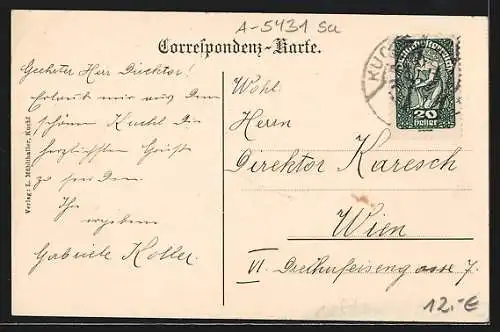 A-5431 Sa
Correspondenz-Karte.
KUCHL
Deutschösterreich
20
Heller
Geehrter Herr Direktor!
Erlaub mir aus dem
schönen Kuchl die
herzlichsten Grüße
zu senden
Ihr
ergebene
Gabriele Koller.
Verlag: L. Mühlthaller, Kuchl
Wohl
Herrn
Direktor Karesch
Wien
VI. Dreihufeisengasse 7.
12.-€